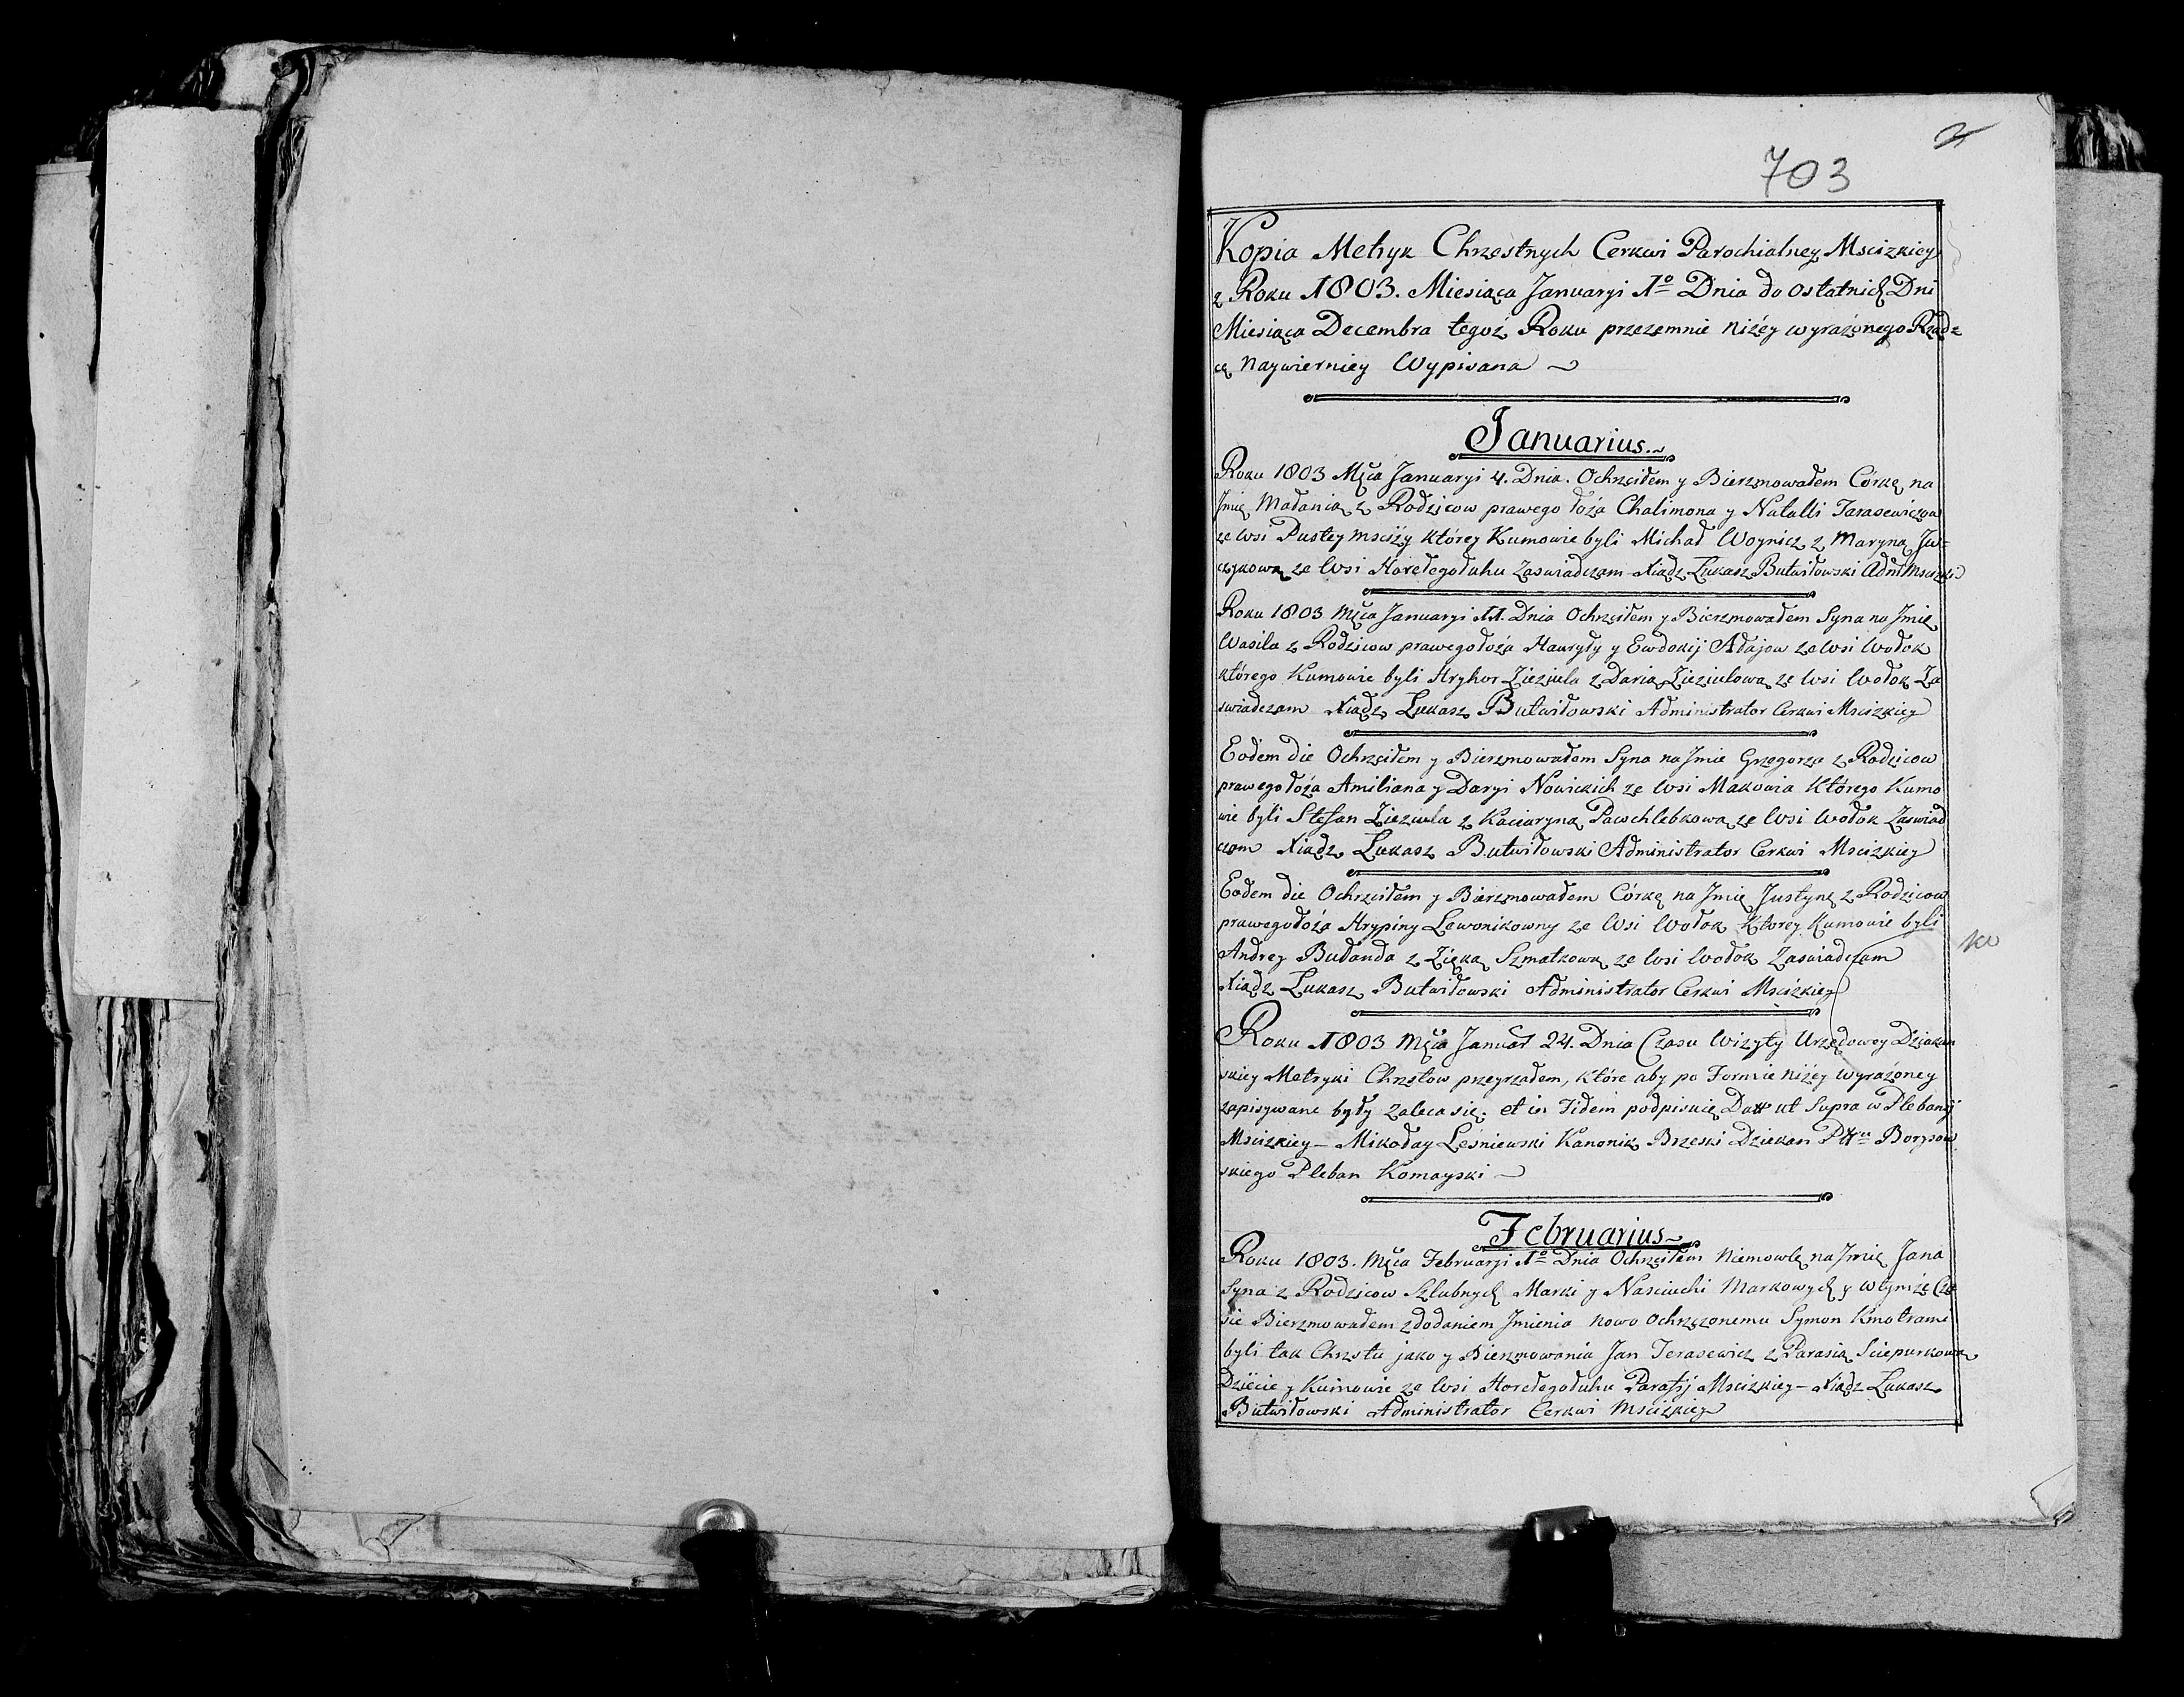 2
703
Kopia Metryk Chrzestnych Cerkwi Parochialney Mscizkiey
z Roku 1803. Miesiąca Januaryi 1º Dnia do ostatnich Dni
Miesiąca Decembra tegoż Roku przezemnie niżey wyrażonego Rządz
cę naywierniey Wypisana
Januarius.
Roku 1803 Mca Januaryi 4. Dnia. Ochrzciłem y Bierzmowałem Córkę na
Jmię Małanią z Rodzicow prawego łoża Chalimona y Natalli Tarasewiczow
ze Wsi Pustey Mscizy którey Kumowie byli Michał Woynicz z Maryną Ju=
czykową ze Wsi Horełegołuhu Zaswiadczam Xiądz Łukasz Butwiłowski Adm Mscizki
Roku 1803 Mca Januaryi 11. Dnia Ochrzciłem y Bierzmowałem Syna na Jmię
Wasila z Rodzicow prawego łoża Hauryły y Ewdokij Adajow ze Wsi Wołok
którego Kumowie byli Hryhor Zieziula z Darią Zieziulową ze Wsi Wołok Za
swiadczam Xiądz Łukasz Butwiłowski Administrator Cerkwi Mscizkiey
Eodem die Ochrzciłem y Bierzmowałem Syna na Jmie Grzegorza z Rodzicow
prawego łoża Amiliana y Daryi Nowickich ze Wsi Makowia Którego Kumo
wie byli Stefan Ziezula z Kaciaryną Pawchlebkową ze Wsi Wołok Zaswiad
czam Xiądz Łukasz Butwiłowski Administrator Cerkwi Mscizkiey
Eodem die Ochrzciłem y Bierzmowałem Córkę na Jmie Justynę z Rodzicow
prawego łoża Hrypiny Lewonikowny ze Wsi Wołok Ktorey Kumowie byli
Andrey Bułanda z Zięką Szmatkową ze Wsi Wołok Zaswiadczam
Xiądz Łukasz Butwiłowski Administrator Cerkwi Mscizkiey
Roku 1803 Mca Januar 24. Dnia Czasu Wizyty Urzędowey Dziekan
skiey Metryki Chrztow przeyrzałem, które aby po Formie niżey wyrażoney
zapisywane były zaleca się: et in Fidem podpisuię Datt ut Supra w Plebanij
Mscizkiey - Mikołay Leśniewski Kanonik Brzeski Dziekan Borysow
skiego Pleban Komayski
Februarius
Roku 1803. Mca Februaryi 1º Dnia Ochrzciłem Niemowlę na Jmię Jana
Syna z Rodzicow Szlubnych Marki y Nasciuchi Markowych y w tymże Cza
sie Bierzmowałem z dodaniem Jmienia nowo Ochrzczonemu Symon Kmotrami
byli tak Chrztu jako y Bierzmowania Jan Terasewicz z Parasią Sciepurkową
Dziecie y Kumowie ze Wsi Horełegołuhu Parafij Mscizkiey - Xiądz Łukasz
Butwiłowski Administrator Cerkwi Mscizkiey